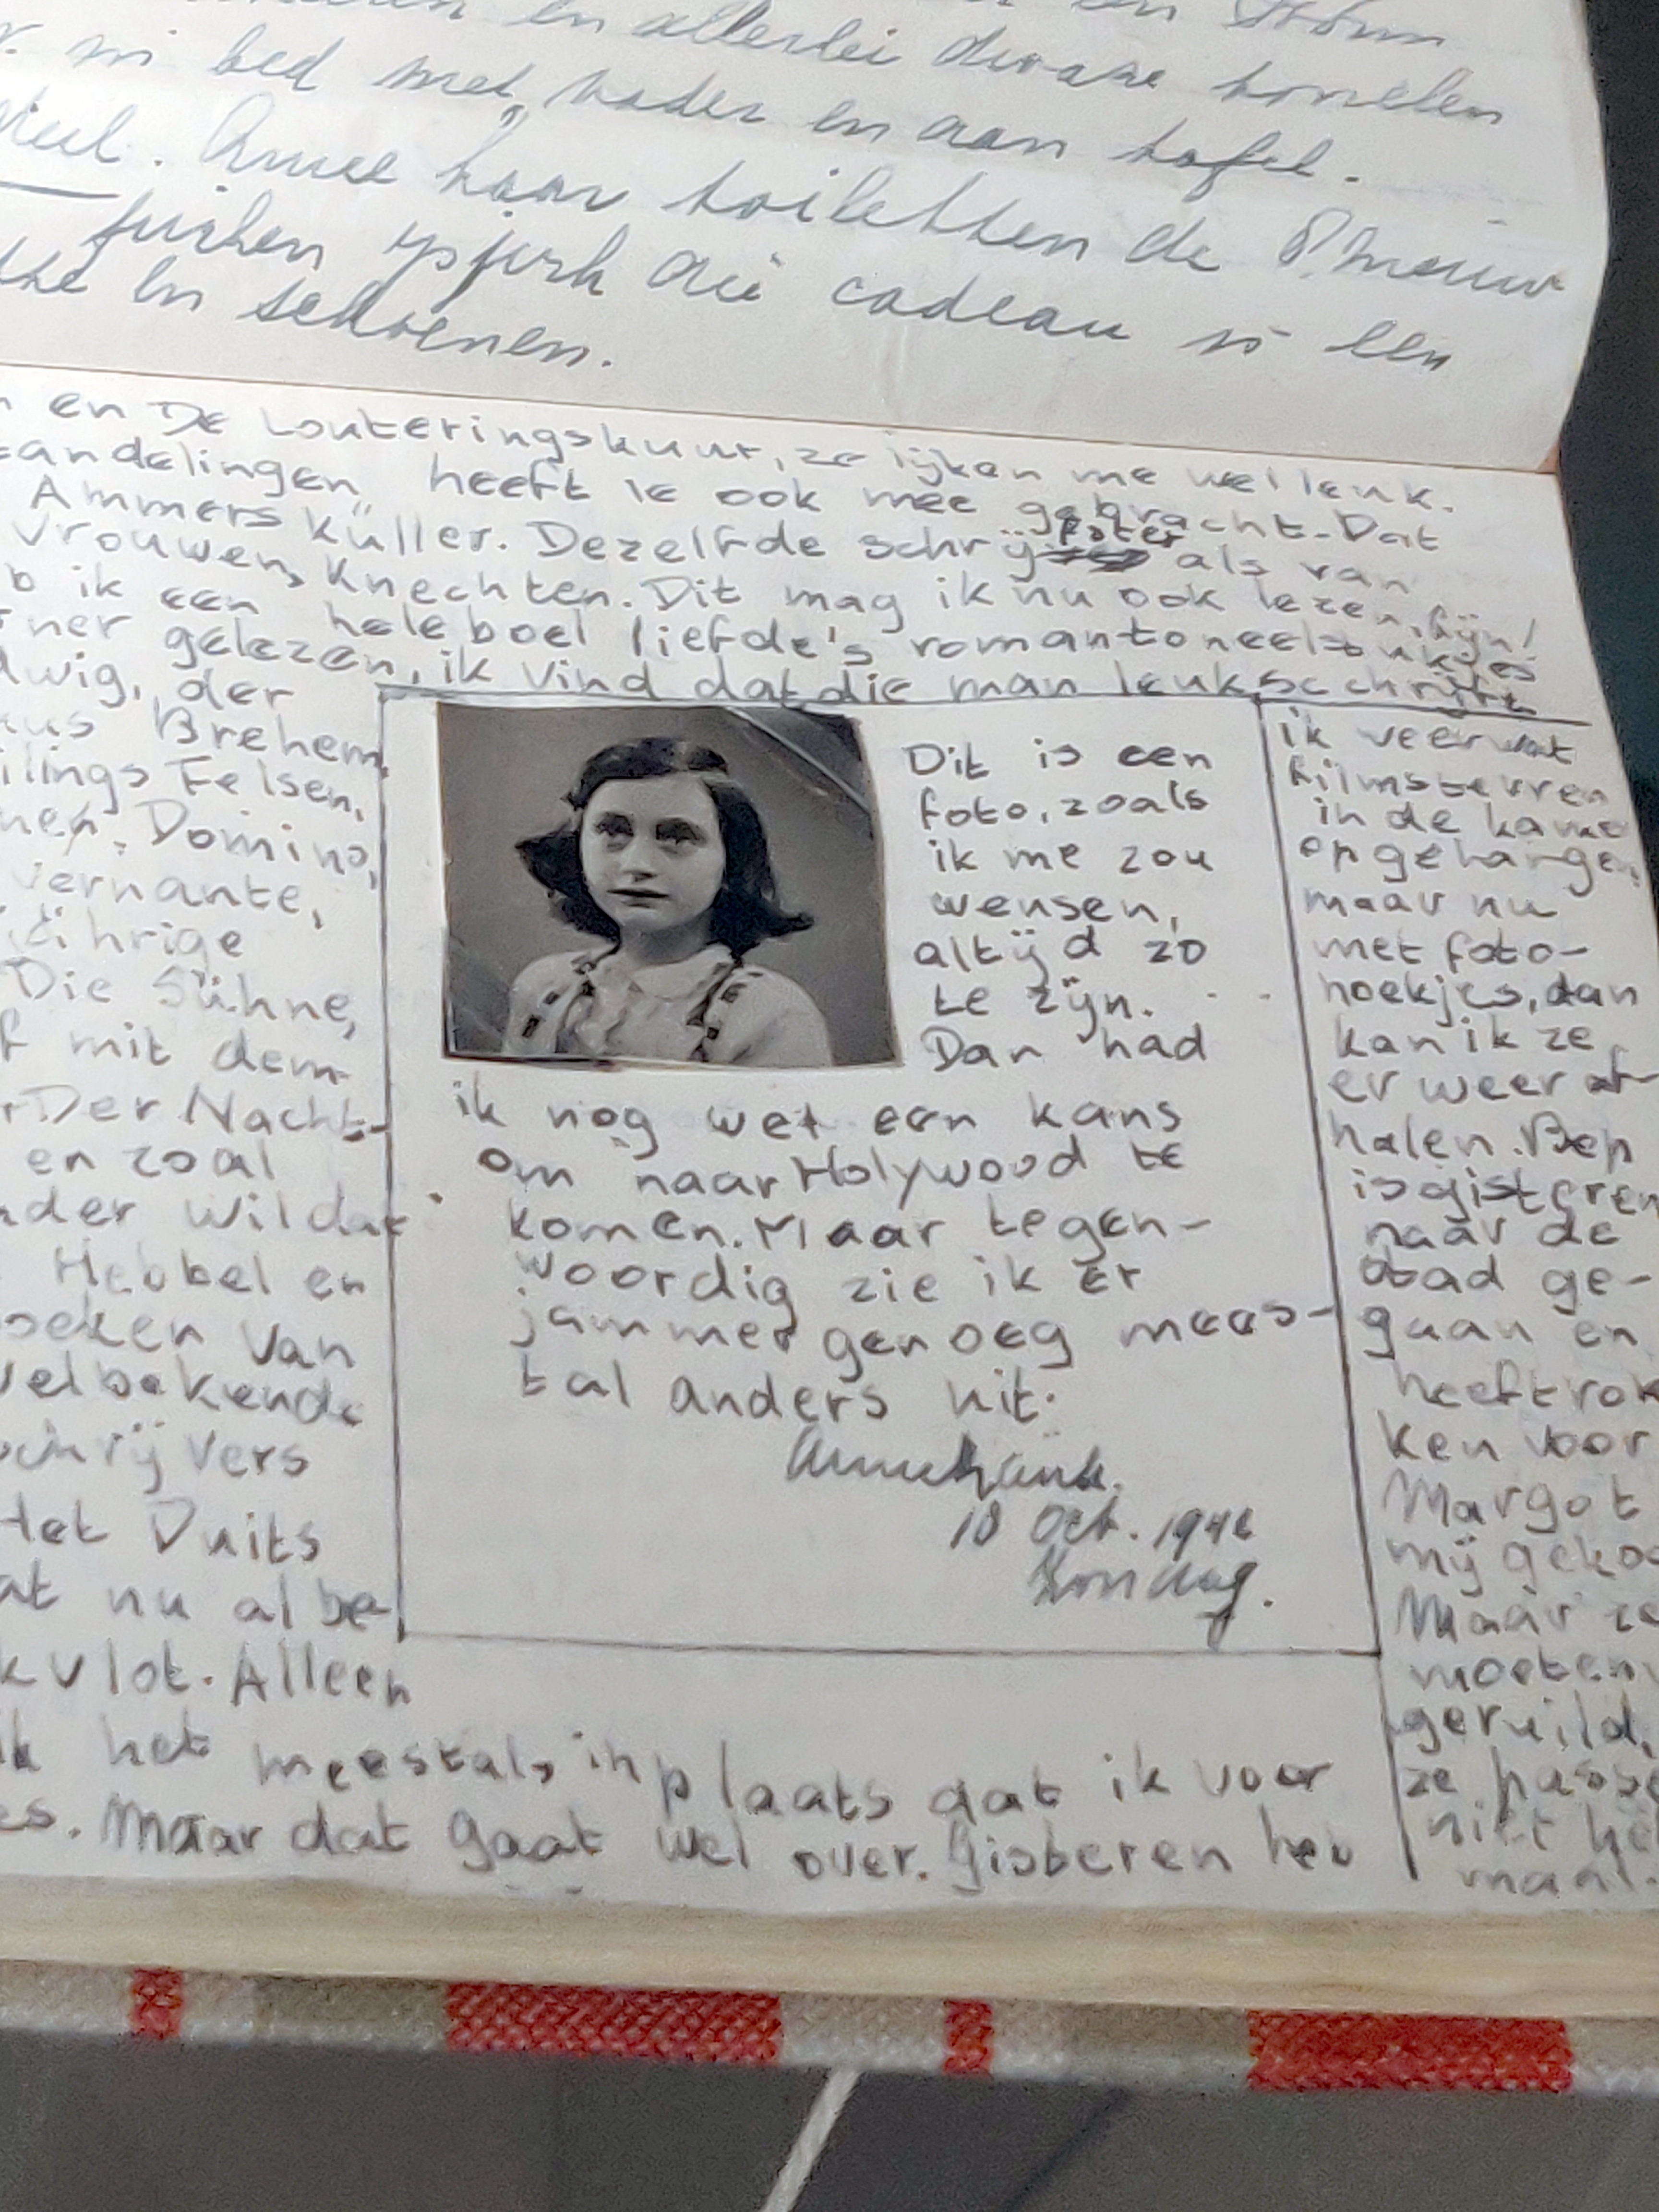 en allerlei dwaze tonelen
in bed met vader en aan tafel.
Anne haar toiletten de
cadeau een
en schoenen.
en De Louteringskuur, ze lijken me wel leuk.
andelingen" heeft ie ook mee gebracht. Dat
Ammers Küller. Dezelfde schrijfster als van
vrouwen, Knechten. Dit mag ik nu ook lezen, fijn!
b ik een hele boel liefde's romantoneelstukjes
ner gelezen, ik vind dat die man leuk schrijft
dwig, der
us Brehem,
ilings Felsen,
Domino,
vernante,
jährige
Die Sühne,
f mit dem
Der Nacht-
en zoal
nder Wildar
Hebbel en
oeken van
welbekende
schrijvers
Het Duits
at nu al be-
k vlot. Alleen
ik het meestals inplaats dat ik voor
es. Maar dat gaat wel over. Gisteren heb
Dit is een
foto, zoals
ik me zou
wensen,
altijd zo
te zijn.
Dan had
ik nog wel een kans
om naar Holywood te
komen. Maar tegen-
woordig zie ik er
jammer genoeg mees-
tal anders uit.
Annefrank.
18 Oct. 1942
Zondag.
ik veer wat
filmsterren
in de kamer
opgehangen,
maar nu
met foto-
hoekjes, dan
kan ik ze
er weer af-
halen. Bep
is gisteren
naar de
stad ge-
gaan en
heeft rok
ken voor
Margot
mij geko
Maar ze
moeten
geruild,
ze passe
niet he
maal.